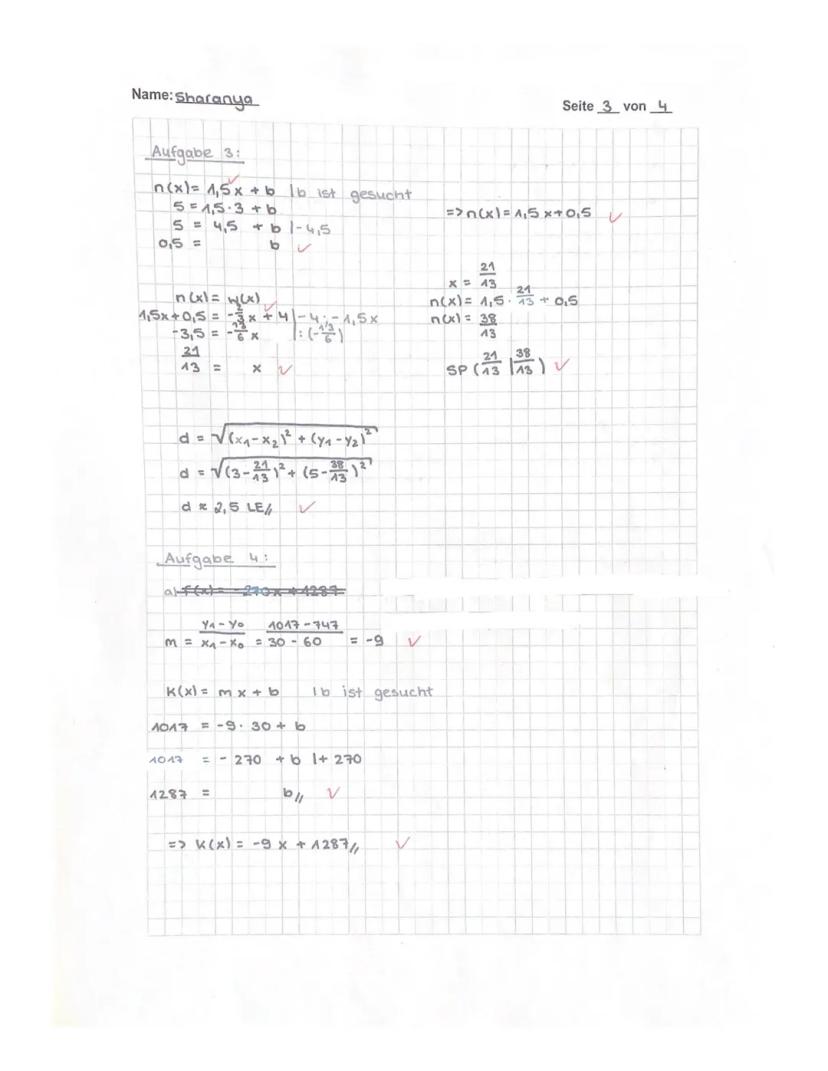 Name: Sharanya
Seite 3 von 4
Aufgabe 3:
n(x) = 1,5x + b | b ist gesucht
5 = 1,5 · 3 + b
5 = 4,5 + b | -4,5
0,5 = b ✓
=> n(x) = 1,5x + 0,5 ✓
n(x) = w(x)
1,5x + 0,5 = -2/3 x + 4 | -4; -1,5x
-3,5 = -13/6 x | : (-13/6)
21/13 = x ✓
x = 21/13
n(x) = 1,5 · 21/13 + 0,5
n(x) = 38/13
SP (21/13 | 38/13) ✓
d = √((x₁-x₂)² + (y₁-y₂)²)
d = √((3-21/13)² + (5-38/13)²)
d ≈ 2,5 LE// ✓
Aufgabe 4:
a) f(x) = -270x + 1287
m = (y₁-y₀)/(x₁-x₀) = (1017-747)/(30-60) = -9 ✓
K(x) = mx + b | b ist gesucht
1017 = -9 · 30 + b
1017 = -270 + b | + 270
1287 = b// ✓
=> K(x) = -9x + 1287// ✓